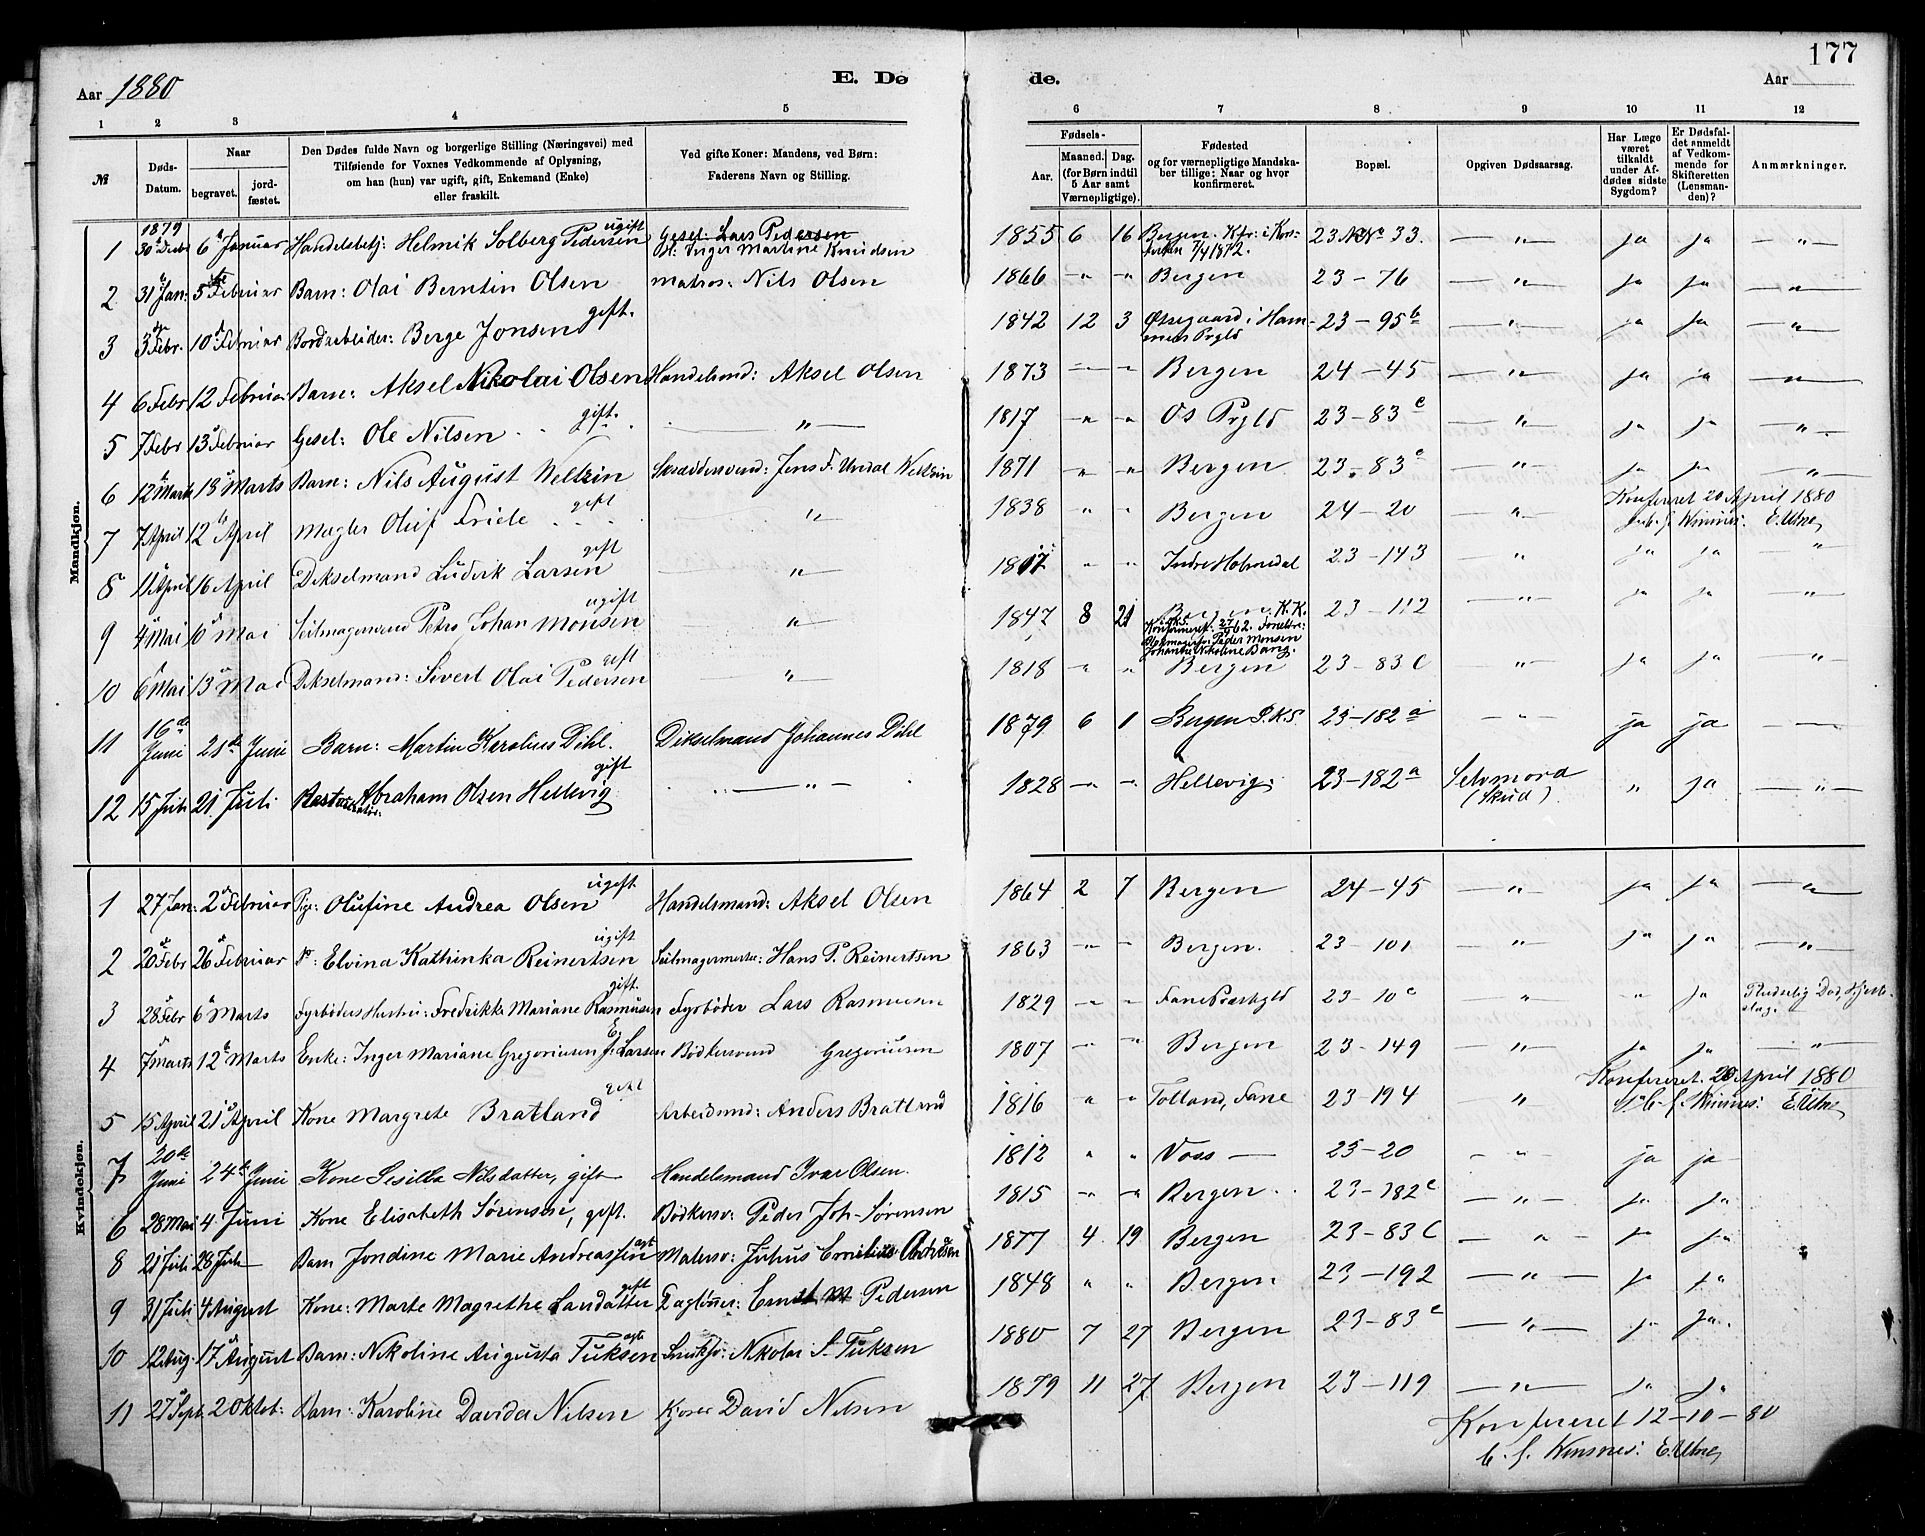 177
Aar 1880
E. Dø
de.
Aar
1 2 3 4 5 6 7 8 9 10 11 12
№
Døds-Datum.
Naar
begravet.
jord-fæstet.
Den Dødes fulde Navn og borgerlige Stilling (Næringsvei) med
Tilføiende for Voxnes Vedkommende af Oplysning,
om han (hun) var ugift, gift, Enkemand (Enke)
eller fraskilt.
Ved gifte Koner: Mandens, ved Børn:
Faderens Navn og Stilling.
Fødsels-
Aar.
Maaned. Dag.
(for Børn indtil
5 Aar samt
Værnepligtige).
Fødested
og for værnepligtige Mandska-
ber tillige: Naar og hvor
konfirmeret.
Bopæl.
Opgiven Dødsaarsag.
Har Læge
været
tilkaldt
under Af-
dødes sidste
Sygdom?
Er Dødsfal-
det anmeldt
af Vedkom-
mende for
Skifteretten
(Lensman-
den)?
Anmærkninger.
Mandkjøn.
1879
1 30 Decbr 6 Januar Handelsbetj: Helmik Solberg Pedersen ugift Gesel: Lars Pedersen Inger Martine Knudsen 1855 6 16 Bergen. Kfr: i 7/4 1872. 23 No 33. — " — ja ja — " —
2 31 Jan: 5 Februar Barn: Olai Berntin Olsen matros: Nils Olsen 1866 " " Bergen 23 – 76 — " — ja ja — " —
3 3 Febr. 10 Februar Bordarbeider: Berge Jonsen gift. 1842 12 3 i Ham-mers Prgld 23 – 95 b — " — ja ja — " —
4 6 Febr 12 Februar Barn: Aksel Nikolai Olsen Handelsmd: Aksel Olsen 1873 — " — Bergen 24 – 45 — " — ja ja — " —
5 7 Febr 13 Februar Gesel: Ole Nilsen gift. — " — 1817 " " Os Prgld 23 – 83 c — " — ja ja — " —
6 12 Marts 18 Marts Barn: Nils August Weltzin Skræddersvend: Jens F. Undal Weltzin 1871 " " Bergen 23 – 83 c — " — ja ja — " —
Konfereret 20 April 1880
7 7 April 12 April Mægler Oluf Friele gift — " — 1838 " " Bergen 24 – 20 — " — Kinsnes: E. Utne
8 11 April 16 April Dikselmand Luderik Larsen gift — " — 1817 " " Indre Holmedal 23 – 143 " ja ja "
9 4 Mai 6 Mai Seilmagersvend Petrs Johan Monsen ugift — " — 1847 8 21 Bergen. K.K. Konfirmeret Peder Monsen Nikoline 23 – 112 — " — ja ja — " —
10 6 Mai 13 Mai Dikselmand: Sivert Olai Pedersen gift — " — 1818 " " Bergen 23 – 83 C — " — ja ja — " —
11 16de Juni 21de Juni Barn: Martin Karolius Dihl. Dikselmand Johannes Dihl 1879 6 1 Bergen S.K.S. 23 – 182 a — " — ja ja —
12 15 Juli 21 Juli Abraham Olsen Hellevig gift — " — 1828 " " Hellevig 23 – 182 a Selvmord (Skud). " ja — " —
Kvindekjøn.
1 27 Jan: 2 Februar Pige: Olufine Andrea Olsen ugift Handelsmand: Aksel Olsen 1864 2 7 Bergen 24 – 45 — " — ja ja — " —
2 20 Febr 26 Februar Do: Elvina Kathinka Reinertsen ugift Seilmagermester: Hans P. Reinertsen 1863 " " Bergen. 23 – 101 — " — ja ja — " —
3 28 Febr 6 Marts Fyrbøders Hustru: Fredrikke Mariane Rasmusen gift. Fyrbøder Lars Rasmusen 1829 " " Fane Præstegld 23 – 10 c " " ja Pludselig Død, Hjerte-slag.
4 7 Marts 12 Marts Enke: Inger Mariane Gregoriusen f. Larsen E. Bødkersvend Gregoriusen 1807 " " Bergen 23 – 149 — " — ja ja — " —
Konfereret 20 April 1880
5 15 April 21 April Kone Margrete Bratland gift Arbeidsmd: Anders Bratland 1816 " " Tolland, Fane 23 – 194 " Kinsnes: E. Utne
7 20de Juni 24de Juni Kone Sesilla Nilsdatter, gift Handelsmand Ivar Olsen. 1812 " " Voss — 23 – 20 — " — ja ja
6 28 Mai 4 Juni Kone Elisabeth Sørensen, gift. Bødkersv: Peder Joh. Sørensen 1815 " " Bergen 23 – 182 c — " — ja ja
8 21 Juli 28 Juli Barn Jondine Marie Andreassen ægt Malersv: Julius Emelius Andreassen 1877 4 19 Bergen 23 – 83 C — " — ja ja
9 31 Juli 4 August Kone: Marte Magrethe Larsdatter gift Dagløner: Ernst M Pedersen 1848 " " Bergen 23 – 192 — " — ja ja
10 12 Aug. 17 August Barn: Nikoline Augusta Tuksen ægte Nikolai S. Tuksen 1880 7 27 Bergen 23 – 83 c — " — ja ja
11 27 Sept. 2 Oktob: Barn: Karoline Davida Nilsen David Nilsen 1879 11 27 Bergen 23 – 119 — " — ja ja
Konfereret 12 – 10 – 80
Kinsnes: E. Utne